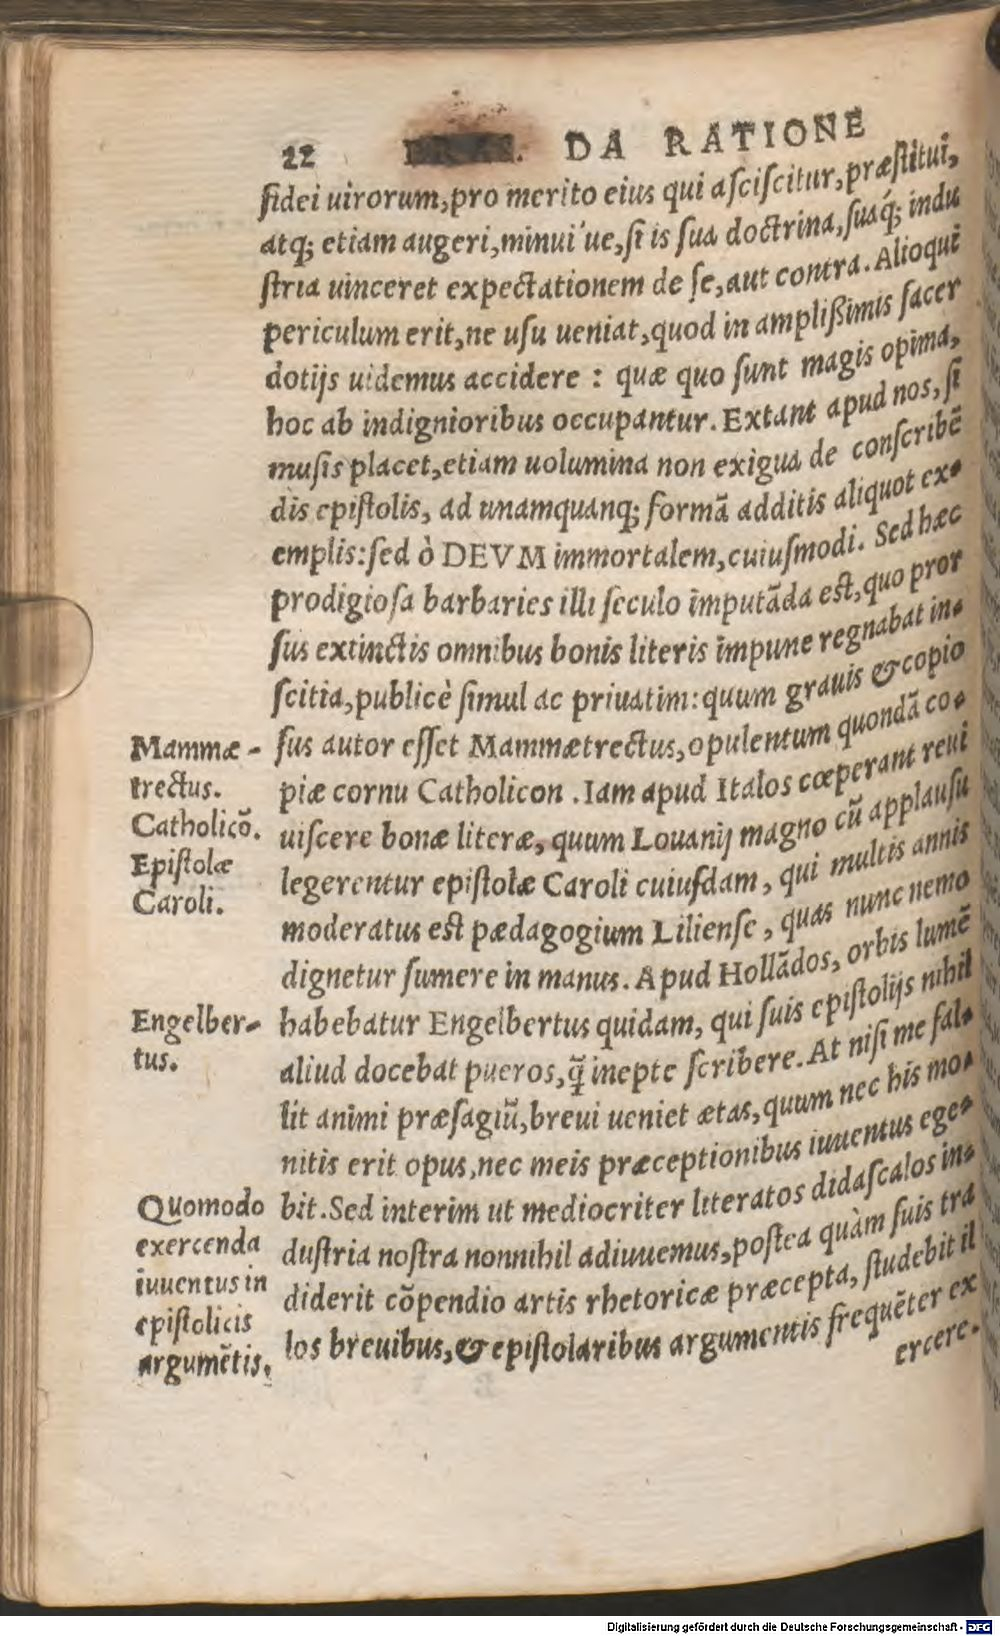 22 ERAS. DA RATIONE
fidei uirorum, pro merito eius qui aſciſcitur, præſtitui,
atq; etiam augeri, minui'ue, ſi is ſua doctrina, ſuaq́; indu
ſtria uinceret expectationem de ſe, aut contra. Alioqui
periculum erit, ne uſu ueniat, quod in amplißimis ſacer
dotijs uidemus accidere : quæ quo ſunt magis opima,
hoc ab indignioribus occupantur. Extant apud nos, ſi
muſis placet, etiam uolumina non exigua de conſcribē
dis epiſtolis, ad unamquanq; formā additis aliquot ex-
emplis: ſed ò DEVM immortalem, cuiuſmodi. Sed hæc
prodigioſa barbaries illi ſeculo imputāda eſt, quo pror
ſus extinctis omnibus bonis literis impune regnabat in-
ſcitia, publicè ſimul ac priuatim: quum grauis & copio
Mammæ- ſus autor eſſet Mammætrectus, opulentum quondā co-
trectus. piæ cornu Catholicon . Iam apud Italos cœperant reui
Catholicō. uiſcere bonæ literæ, quum Louanij magno cū applauſu
Epiſtolæ legerentur epiſtolæ Caroli cuiuſdam, qui multis annis
Caroli. moderatus eſt pædagogium Lilienſe, quas nunc nemo
dignetur ſumere in manus. Apud Hollādos, orbis lumē
Engelber- habebatur Engelbertus quidam, qui ſuis epiſtolijs nihil
tus. aliud docebat pueros, q̃ inepte ſcribere. At niſi me fal-
lit animi præſagiū, breui ueniet ætas, quum nec his mo-
nitis erit opus, nec meis præceptionibus iuuentus ege-
Quomodo bit. Sed interim ut mediocriter literatos didaſcalos in-
exercenda duſtria noſtra nonnihil adiuuemus, poſtea quàm ſuis tra
iuuentus in diderit cōpendio artis rhetoricæ præcepta, ſtudebit il
epiſtolicis los breuibus, & epiſtolaribus argumentis frequēter ex
argumētis. ercere.
Digitalisierung gefördert durch die Deutsche Forschungsgemeinschaft - DFG